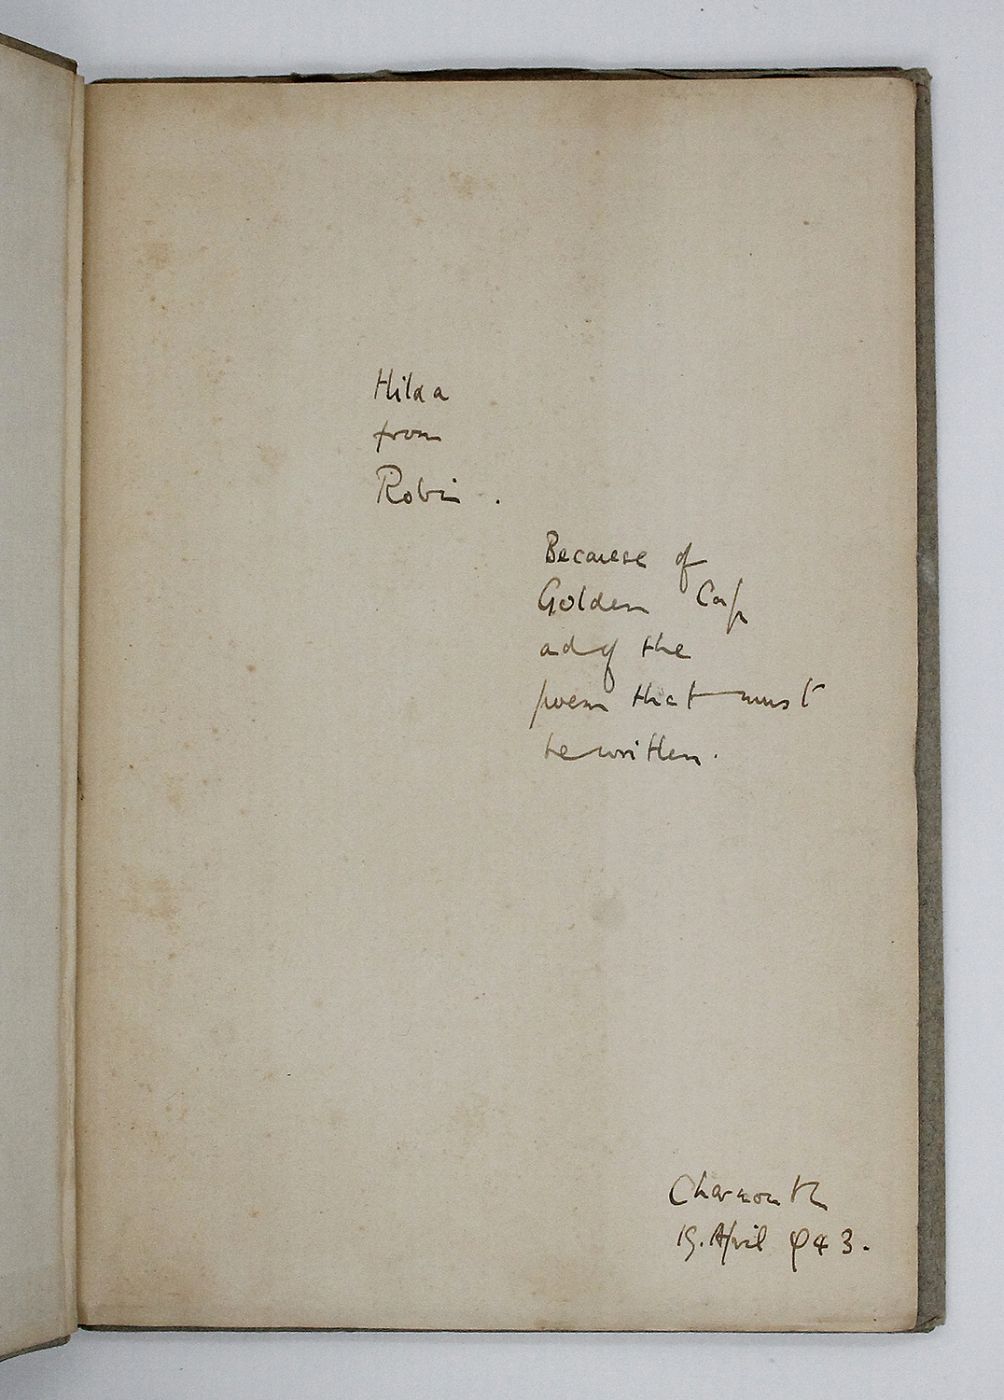 Hilda
from
Robin.
Because of
Golden Cap
and of the
poem that must
be written.
Charmouth
19. April 1943.